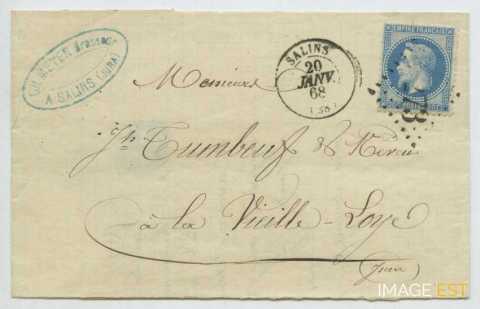 CH. MEYER Brasseur
A SALINS (JURA)
SALINS
20
JANV.
68
EMPIRE FRANÇAIS
Messieurs
Jh Tumbeuf & Neveu
à la Vieille-Loye
(Jura)
IMAGE EST